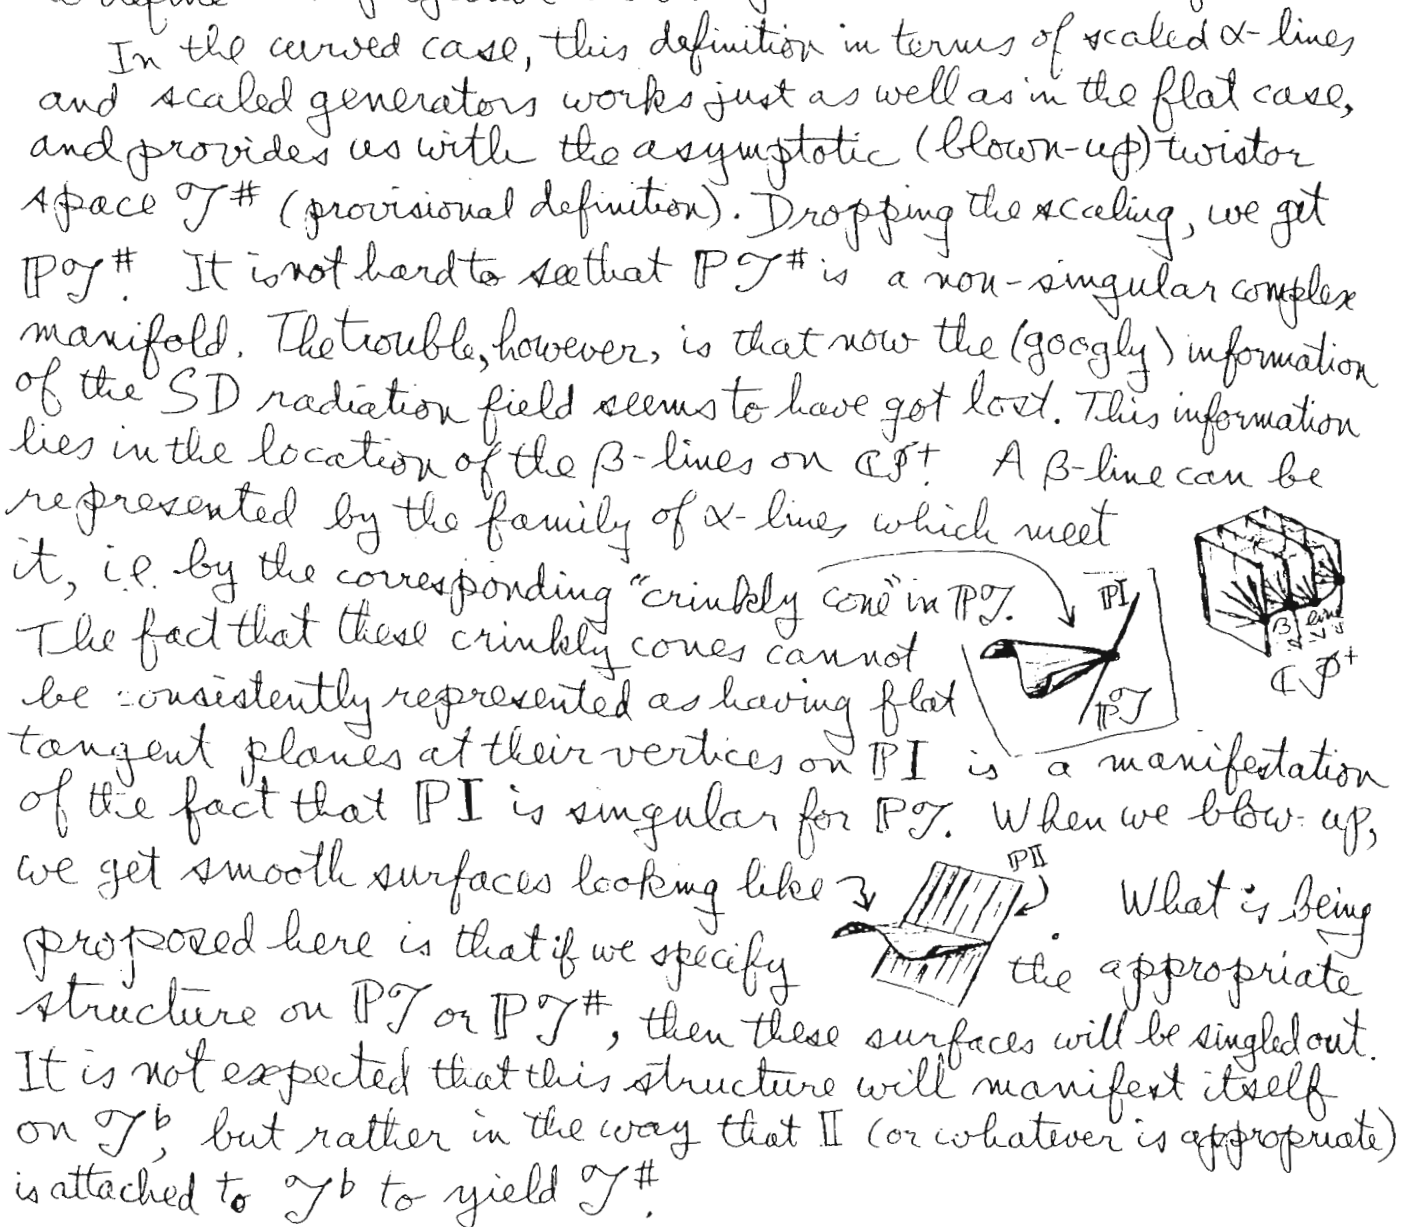 In the curved case, this definition in terms of scaled α-lines
and scaled generators works just as well as in the flat case,
and provides us with the asymptotic (blown-up) twistor
space 𝒯# (provisional definition). Dropping the scaling, we get
ℙ𝒯#. It is not hard to see that ℙ𝒯# is a non-singular complex
manifold. The trouble, however, is that now the (googly) information
of the SD radiation field seems to have got lost. This information
lies in the location of the β-lines on ℂ𝒥+. A β-line can be
represented by the family of α-lines which meet
it, i.e. by the corresponding "crinkly cone" in ℙ𝒯.
ℙI
β line
The fact that these crinkly cones cannot
ℂ𝒥+
be consistently represented as having flat
ℙ𝒯
tangent planes at their vertices on ℙI is a manifestation
of the fact that ℙI is singular for ℙ𝒯. When we blow-up,
ℙ𝕀
we get smooth surfaces looking like . What is being
proposed here is that if we specify the appropriate
structure on ℙ𝒯 or ℙ𝒯#, then these surfaces will be singled out.
It is not expected that this structure will manifest itself
on 𝒯♭, but rather in the way that 𝕀 (or whatever is appropriate)
is attached to 𝒯♭ to yield 𝒯#.